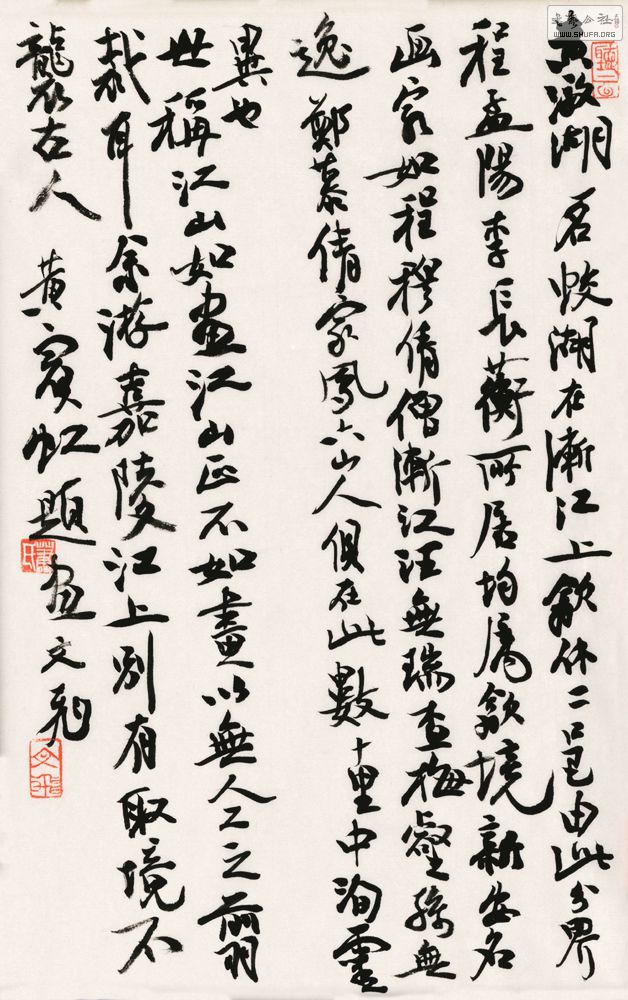 溦湖名蛟湖在漸江上歙休二邑由此分界
程孟陽李長蘅所居均屬歙境新安名
画家如程穆倩僧漸江汪無瑞查梅壑孫無
逸鄭慕倩家鳳六山人俱在此數十里中洵靈
異也
世稱江山如畫江山正不如畫以無人工之剪
裁耳余游嘉陵江上別有取境不
襲古人 黄賓虹題畫 文飛
WWW.SHUFA.ORG